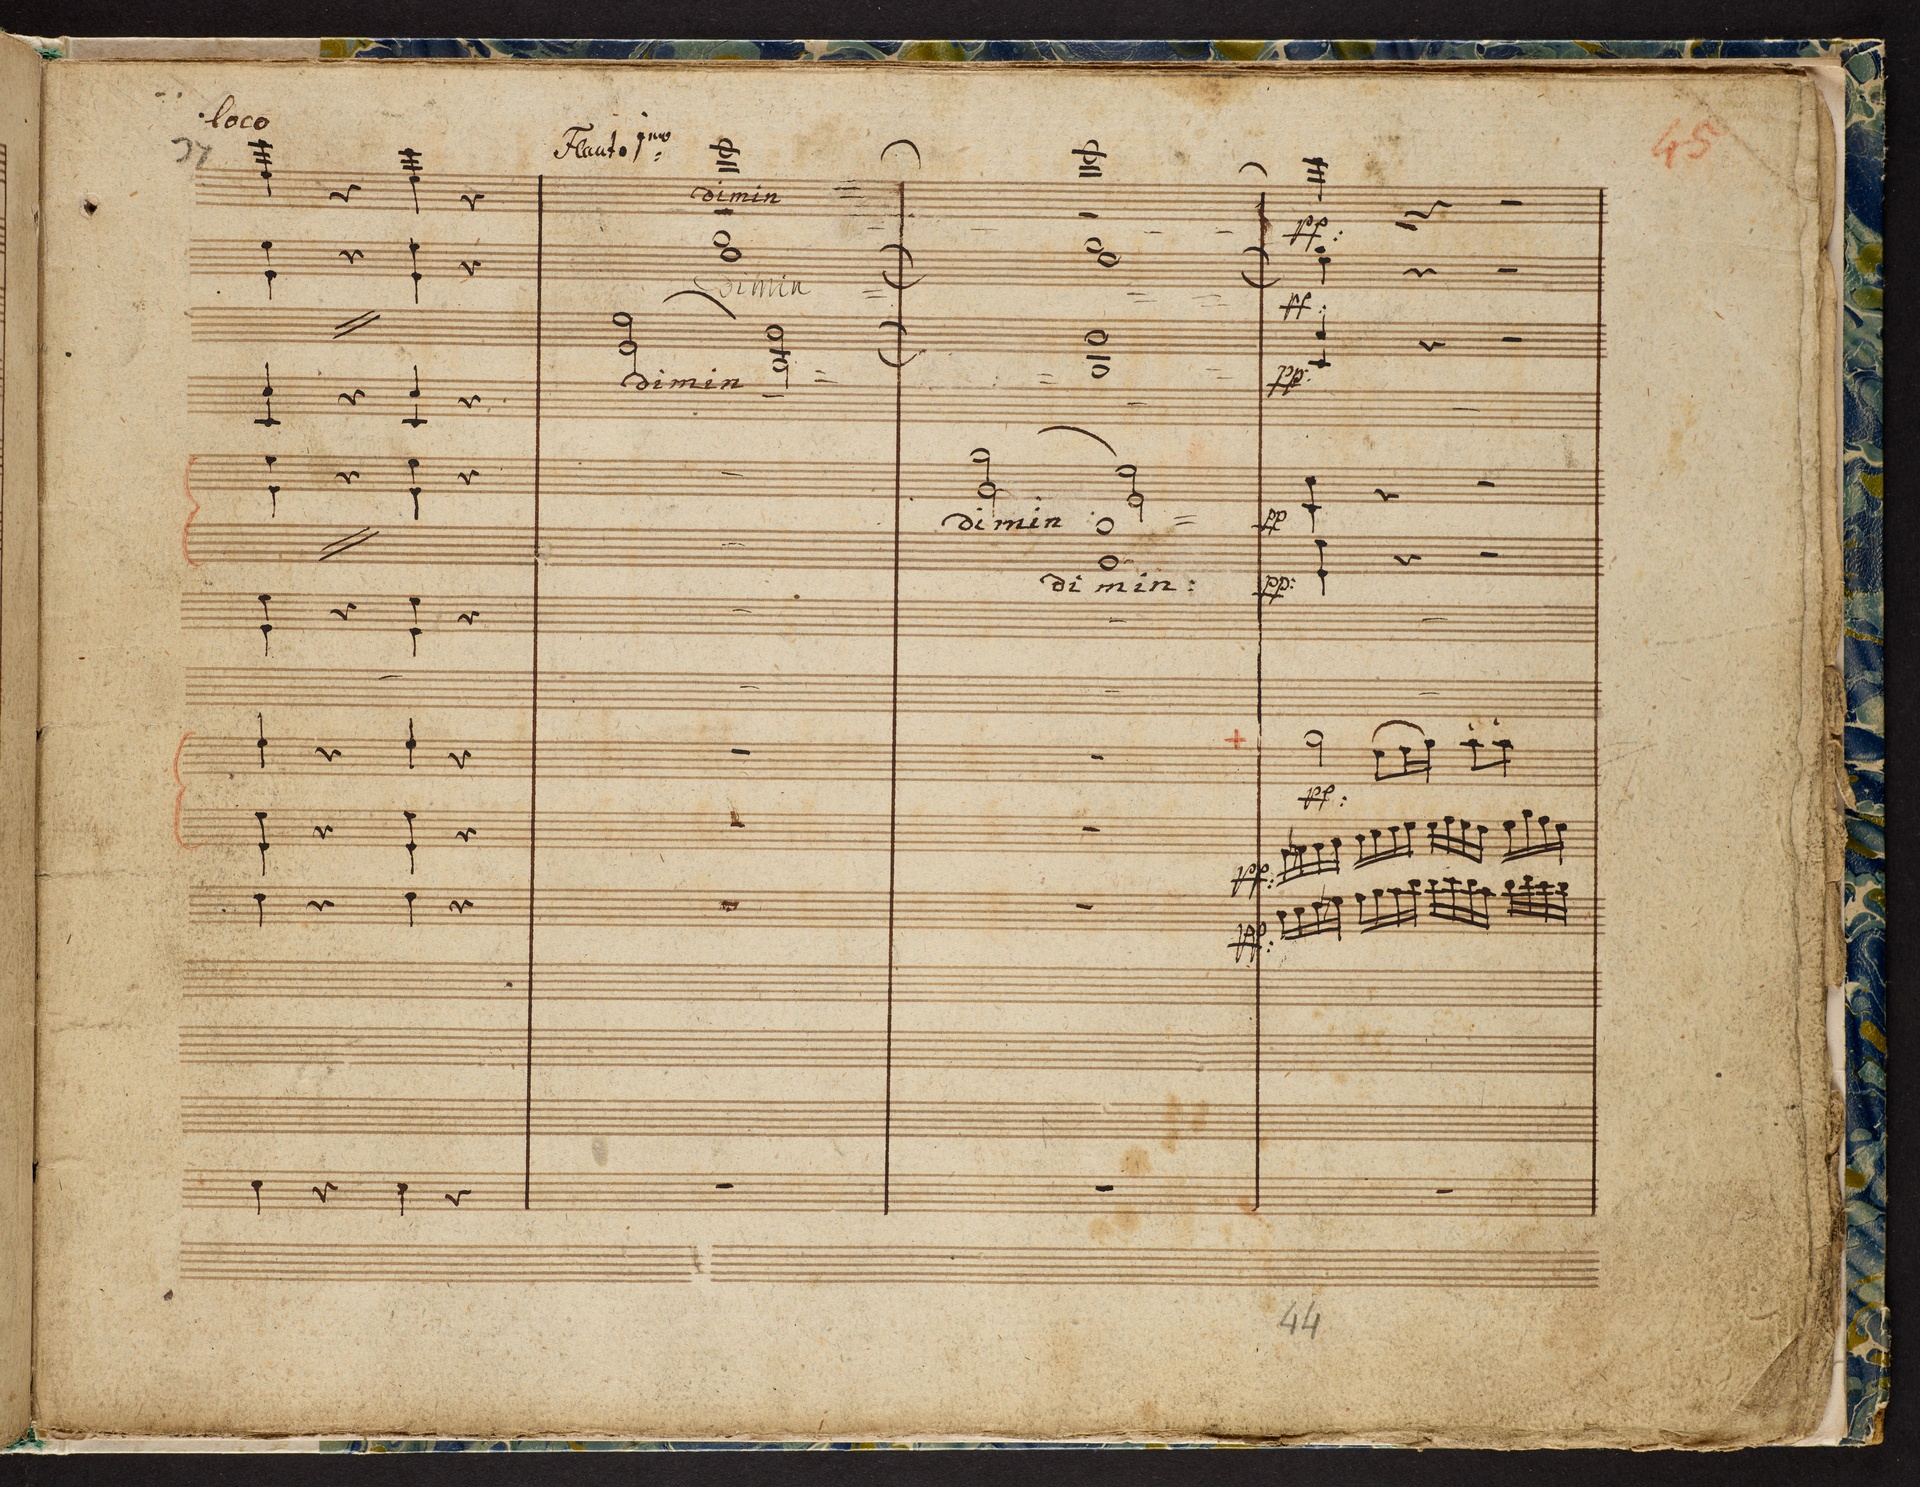 loco
Flauto 1mo:
45
dimin =
pp:
dimin =
pp:
dimin =
pp:
dimin =
pp
dimin:
pp:
+
pp:
pp:
pp:
44